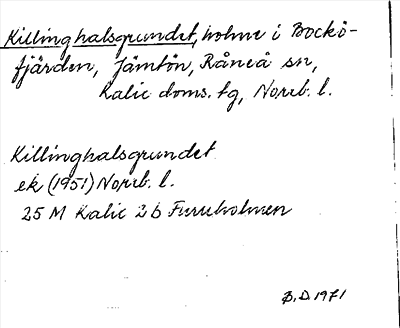 Killinghalsgrundet, holme i Bockö-
fjärden, Jämtön, Råneå sn,
Kalix doms. tg, Norrb. l.
Killinghalsgrundet
ek (1951) Norrb. l.
25 M Kalix 2b Furuholmen
B.D 1971